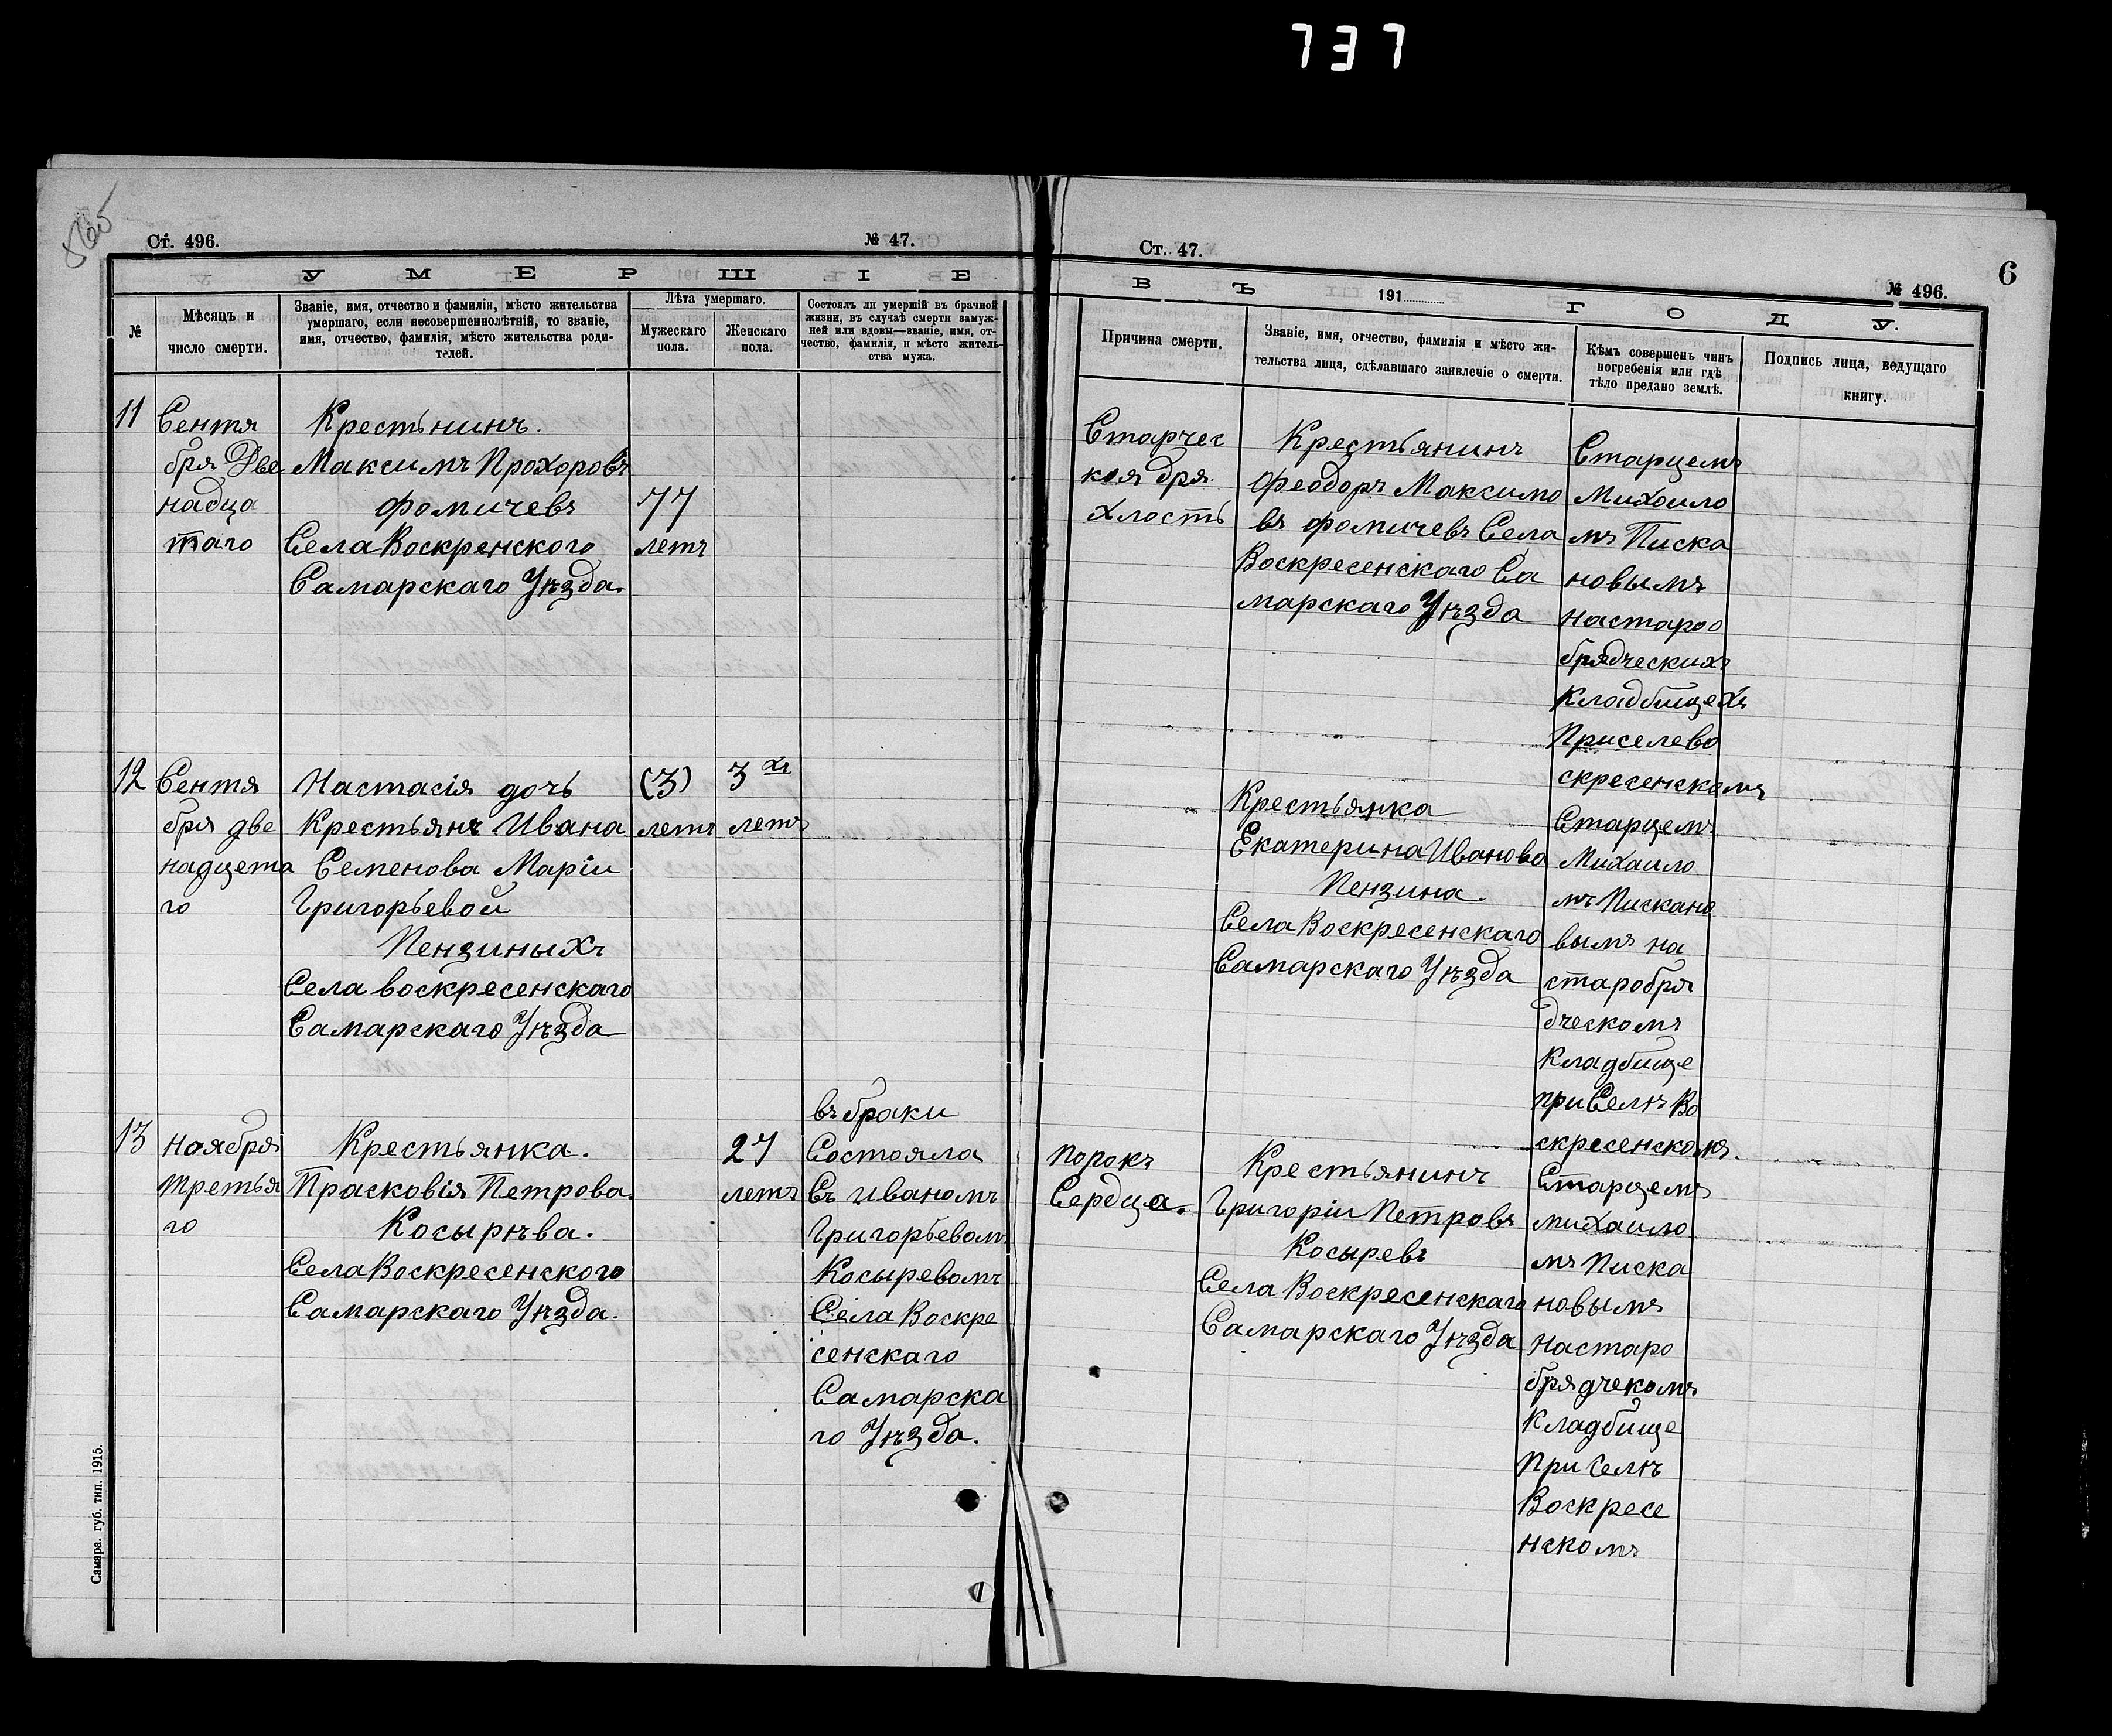 737
Ст. 496.
№ 47.
У М Е Р Ш І Е
№
Мѣсяцъ и
число смерти.
Званіе, имя, отчество и фамилія, мѣсто жительства
умершаго, если несовершеннолѣтній, то званіе,
имя, отчество, фамилія, мѣсто жительства роди-
телей.
Лѣта умершаго.
Мужескаго
пола.
Женскаго
пола.
Состоялъ ли умершій въ брачной
жизни, въ случаѣ смерти замуж-
ней или вдовы—званіе, имя, от-
чество, фамилія, и мѣсто житель-
ства мужа.
11
Сентя
бря Две
надца
таго
Крестьнинъ.
Максимъ Прохоровъ
Фомичевъ
Села Воскренского
Самарскаго Уѣзда.
77
летъ
12
Сентя
бря две
надцета
го
Настасія дочь
Крестьянъ Ивана
Семенова Маріи
Григорьевой
Пензиныхъ
Села воскресенскаго
Самарскаго Уѣзда
(3)
летъ
3 хъ
летъ
13
ноября
третья
го
Крестьянка.
Прасковья Петрова.
Косырѣва.
Села Воскресенского
Самарскаго Уѣзда.
27
летъ
въ браки
Состояла
Съ иваномъ
Григорьевом
Косыревомъ
Села Воскре
сенскаго
Самарска
го Уѣзда.
Самара. губ. тип. 1915.
Ст. 47.
№ 496.
6
В Ъ 191 Г О Д У.
Причина смерти.
Званіе, имя, отчество, фамилія и мѣсто жи-
тельства лица, сдѣлавшаго заявлечіе о смерти.
Кѣмъ совершенъ чинъ
погребенія или гдѣ
тѣло предано землѣ.
Подпись лица, ведущаго
книгу.
Старчес
кая дря
хлость
Крестьянинъ
Феодоръ Максимо
въ Фомичевъ Села
Воскресенскаго Са
марскаго Уѣзда
Старцемъ
Михаило
мъ Писка
новымъ
настароо
брядческихъ
Кладбищехъ
Приселево
скресенскомъ
Крестьянка
Екатерина Иванова
Пензина.
Села Воскресенскаго
Самарскаго Уѣзда
Старцемъ
Михаило
мъ Пискано
вымъ на
старобря
дческомъ
Кладбище
при Селѣ Во
скресенскомъ.
порокъ
Сердца.
Крестьянинъ
Григоріи Петровъ
Косыревъ
Села Воскресенскаго
Самарскаго Уѣзда
Старцемъ
михаило
мъ Писка
новымъ
настаро
брядчекомъ
Кладбище
При Селѣ
Воскресе
нскомъ